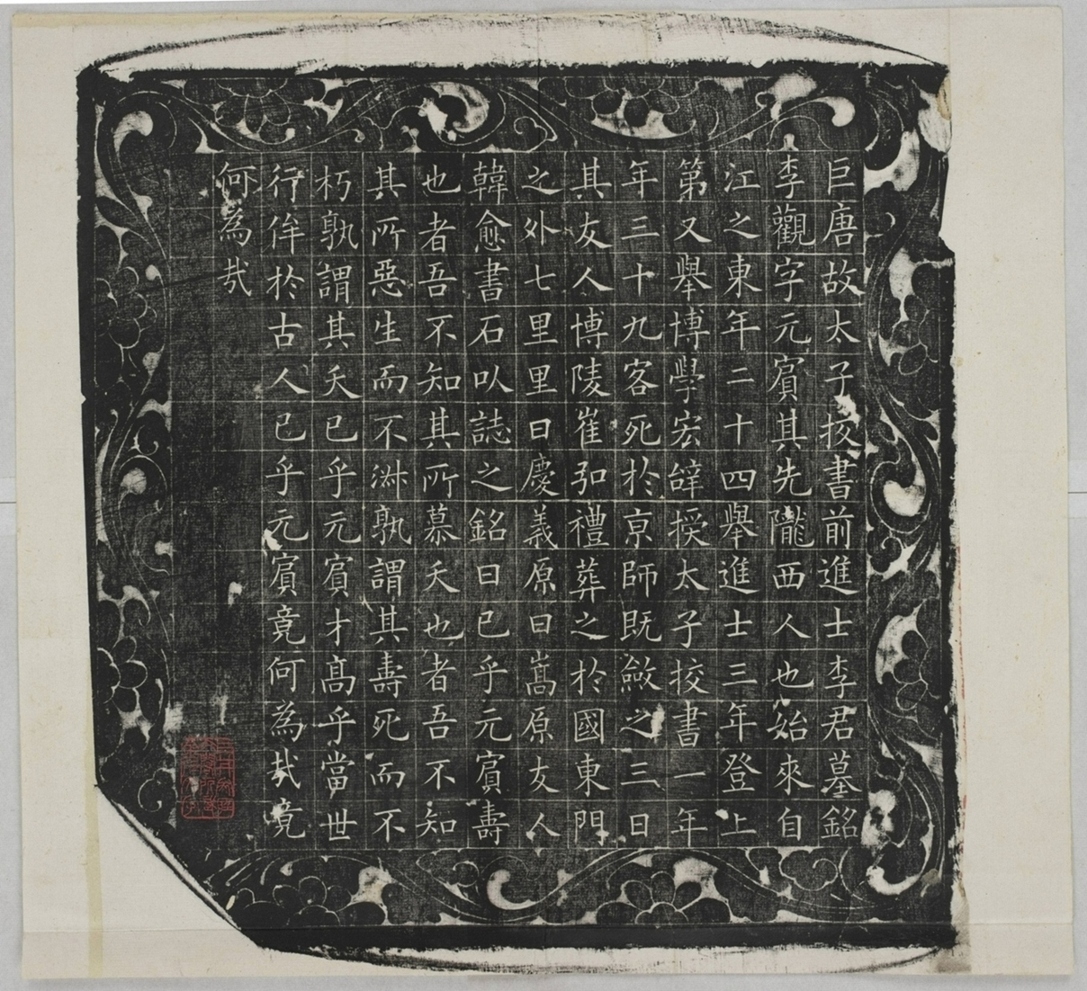 巨唐故太子挍書前進士李君墓銘
李觀字元賔其先隴西人也始來自
江之東年二十四舉進士三年登上
第又舉博學宏辭授太子挍書一年
年三十九客死於京師既斂之三日
其友人博陵崔弘禮葬之於國東門
之外七里里曰慶義原曰嵩原友人
韓愈書石以誌之銘曰已乎元賔壽
也者吾不知其所慕夭也者吾不知
其所惡生而不淑孰謂其壽死而不
朽孰謂其夭已乎元賔才高乎當世
行侔於古人已乎元賔竟何為哉竟
何為哉